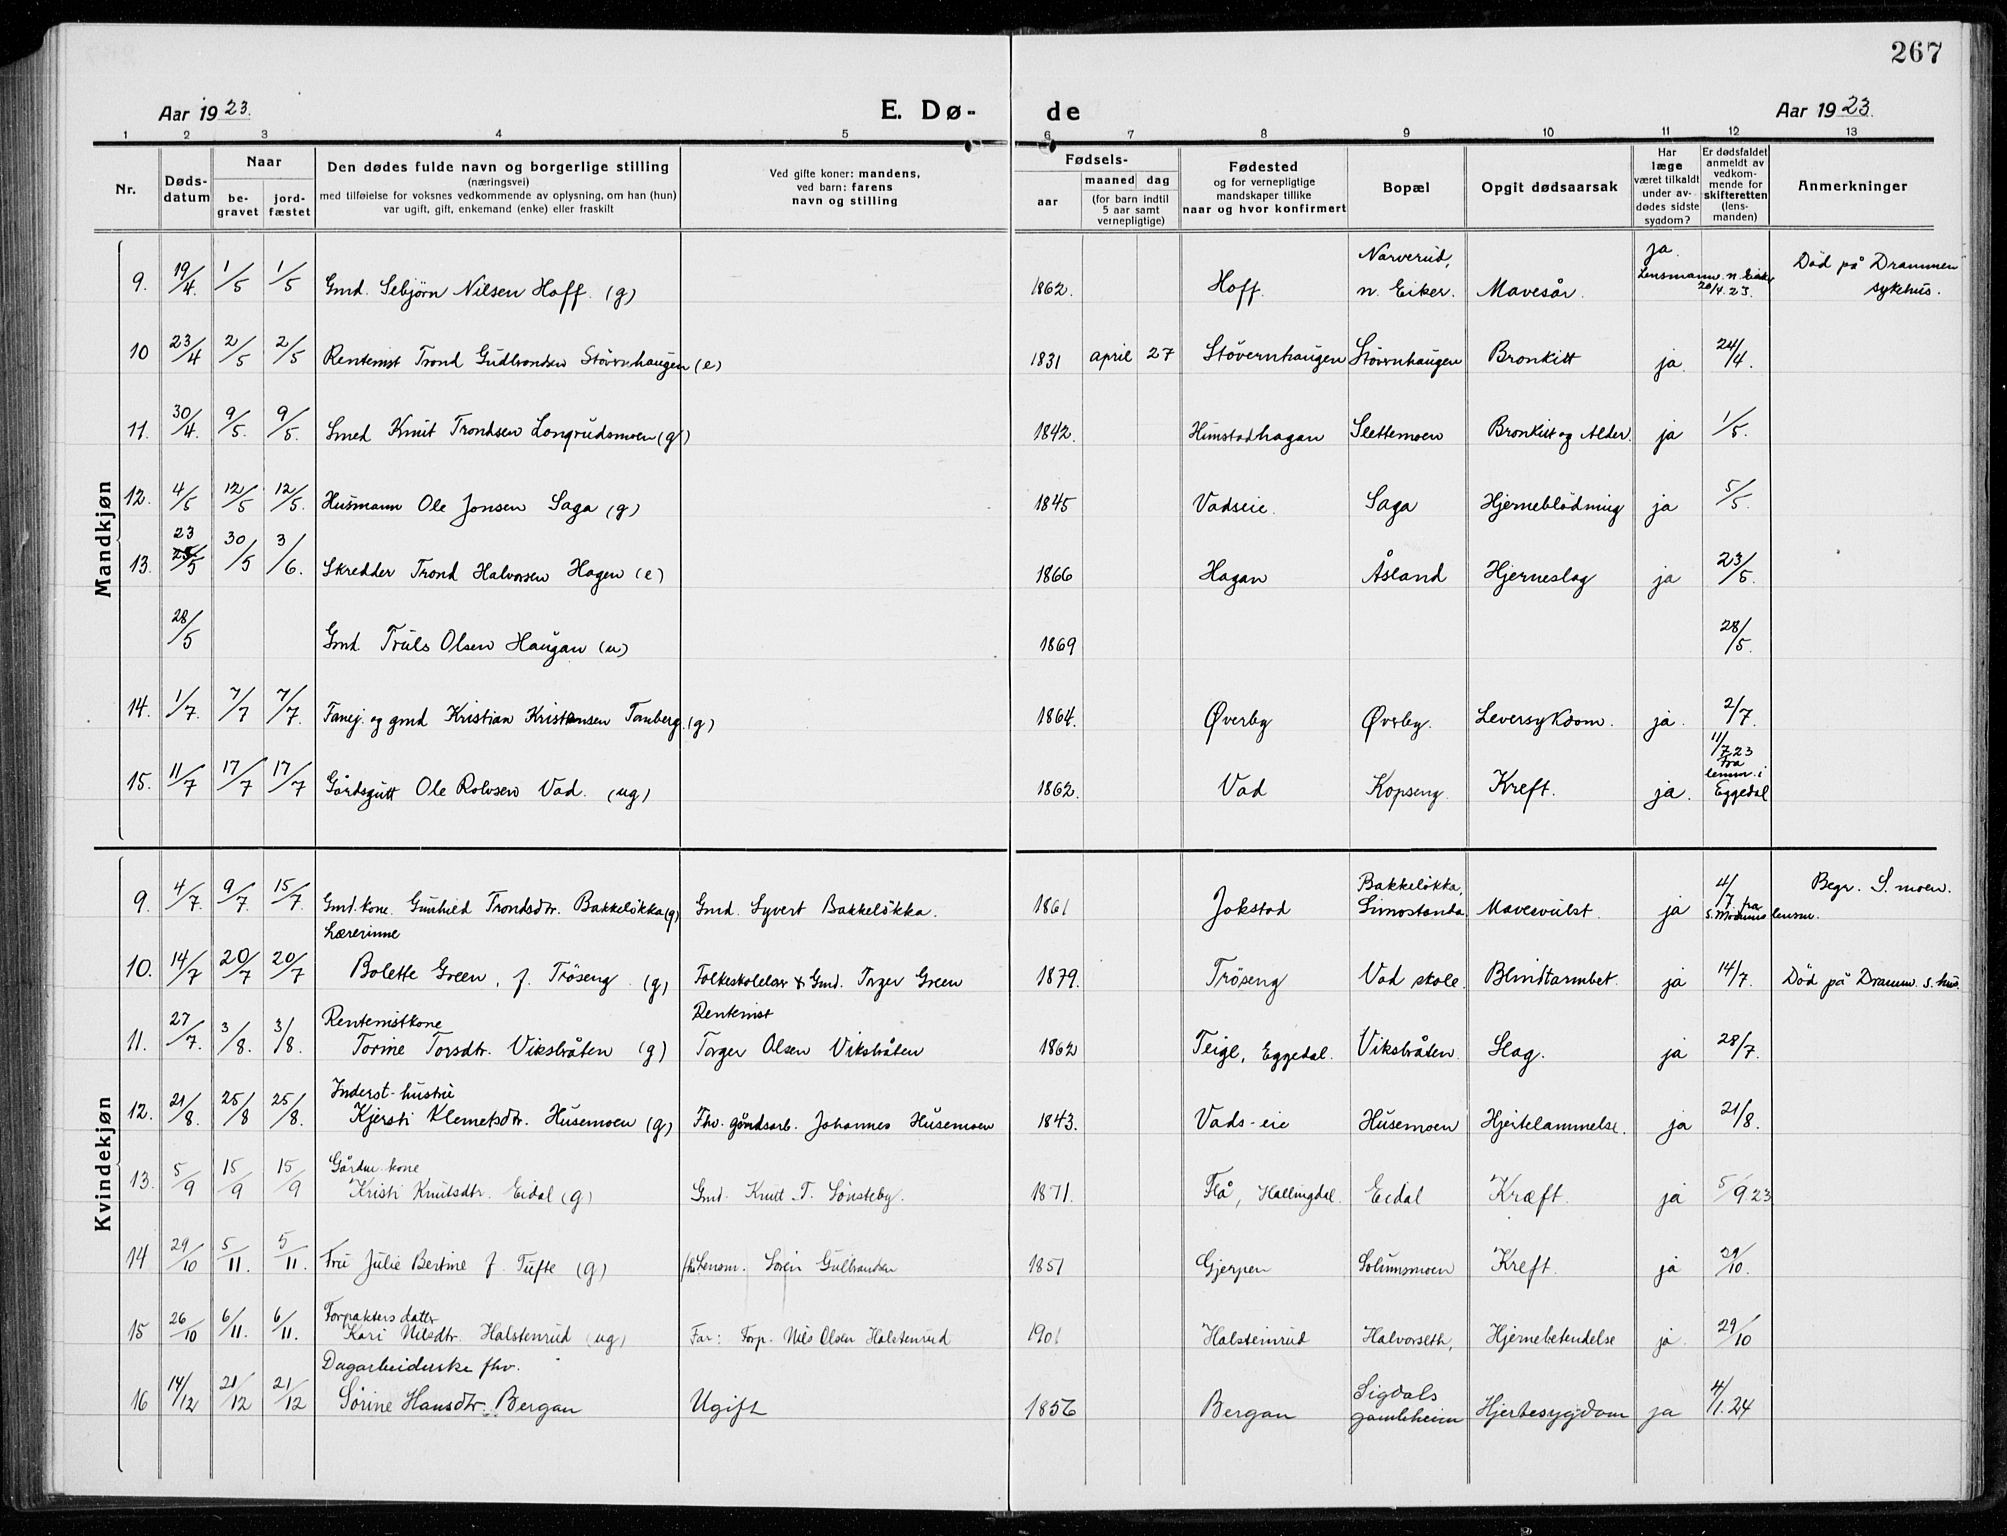 267
Aar 1923. E. Dø- de Aar 1923.
1 2 3 4 5 6 7 8 9 10 11 12 13
Nr.
Døds-
datum
Naar
be-
gravet
jord-
fæstet
Den dødes fulde navn og borgerlige stilling
(næringsvei)
med tilføielse for voksnes vedkommende av oplysning, om han (hun)
var ugift, gift, enkemand (enke) eller fraskilt
Ved gifte koner: mandens,
ved barn: farens
navn og stilling
Fødsels-
aar
maaned dag
(for barn indtil
5 aar samt
vernepligtige)
Fødested
og for vernepligtige
mandskaper tillike
naar og hvor konfirmert
Bopæl
Opgit dødsaarsak
Har
læge
været tilkaldt
under av-
dødes sidste
sygdom?
Er dødsfaldet
anmeldt av
vedkom-
mende for
skifteretten
(lens-
manden)
Anmerkninger
Mandkjøn
9. 19/4. 1/5 1/5 Gmd. Sebjørn Nilsen Hoff. (g) 1862. Hoff. Narverud, n. Eiker. Mavesår. ja. Lensmann. n. Eiker 20/4. 23. Død på Drammen sykehus.
10 23/4 2/5 2/5 Rentenist Trond Gudbrandsen Støvrnhaugen (e) 1831 april 27 Støvernhaugen Støvrnhaugen Bronkitt ja. 24/4.
11. 30/4. 9/5. 9/5. Smed Knut Trondsen Longrudsmoen (g) 1842. Himstadhagan Slettemoen Bronkitt og Alder. ja 1/5.
12. 4/5 12/5 12/5. Husmann Ole Jonsen Saga (g) 1845 Vadseie. Saga Hjerneblödning ja 5/5.
13. 23/5 30/5 3/6. Skredder Trond Halvorsen Hagen (e) 1866 Hagan Åsland Hjerneslag ja 23/5.
28/5 Gmd. Truls Olsen Haugan (u) 1869 28/5.
14. 1/7. 7/7 7/7. Fanej. og gmd Kristian Kristensen Tanberg. (g) 1864. Øverby Øvrby. Leversykdom. ja. 2/7.
15. 11/7 17/7 17/7 Gårdsgutt Ole Rolvsen Vad. (ug) 1862. Vad Kopseng. Kreft. ja. 11/7 23 Fra lensm. i Eggedal
Kvindekjøn
9. 4/7. 9/7. 15/7. Gmd. kone. Gunhild Trondsdtr. Bakkeløkka (g) Gmd. Syvert Bakkeløkka. 1861 Jokstad Bakkeløkka, Simostranda. Mavesvulst. ja 4/7. fra S. Modums lensm. Begr. S. moen.
Lærerinne
10. 14/7 20/7 20/7 Bolette Green, f. Trøseng (g) Folkeskolelærer & Gmd. Torger Green 1879. Trøseng Vad skole. Blindtarmbet. ja 14/7. Død på Dramm. s. hus.
Rentenistkone Rentenist
11. 27/7. 3/8. 3/8 Torine Torsdtr. Viksbråten (g) Torger Olsen Viksbråten 1862 Teige, Eggedal. Viksbråten. Slag. ja 28/7.
Inderst-hustru
12. 21/8. 25/8 25/8. Kjersti Klemetsdtr. Husemoen (g) Fhv. gårdsarb. Johannes Husemoen 1843. Vads-eie Husemoen Hjertelammelse. ja 21/8.
Gårdm. kone
13. 5/9 15/9 15/9 Kristi Knutsdtr. Eidal (g) Gmd. Knut T. Sønsteby. 1871. Flå, Hallingdal. Eidal Kræft. ja 5/9 23
14 29/10 5/11. 5/11. Fru Julie Bertine f. Tufte (g) fhv. Lensm. Søren Gulbrandsen 1851 Gjerpen Solumsmoen Kreft. ja 29/10.
Forpakters datter
15 26/10 6/11. 6/11. Kari Nilsdtr. Halstenrud (ug) Far: Forp. Nils Olsen Halstenrud 1901 Halsteinrud Halvorseth, Hjernebetendelse ja. 29/10
Dagarbeiderske fhv.
16 14/12 21/12 21/12 Sørine Hansdtr. Bergan Ugift 1856 Bergan Sigdals gamleheim Hjertesygdom ja 4/1. 24